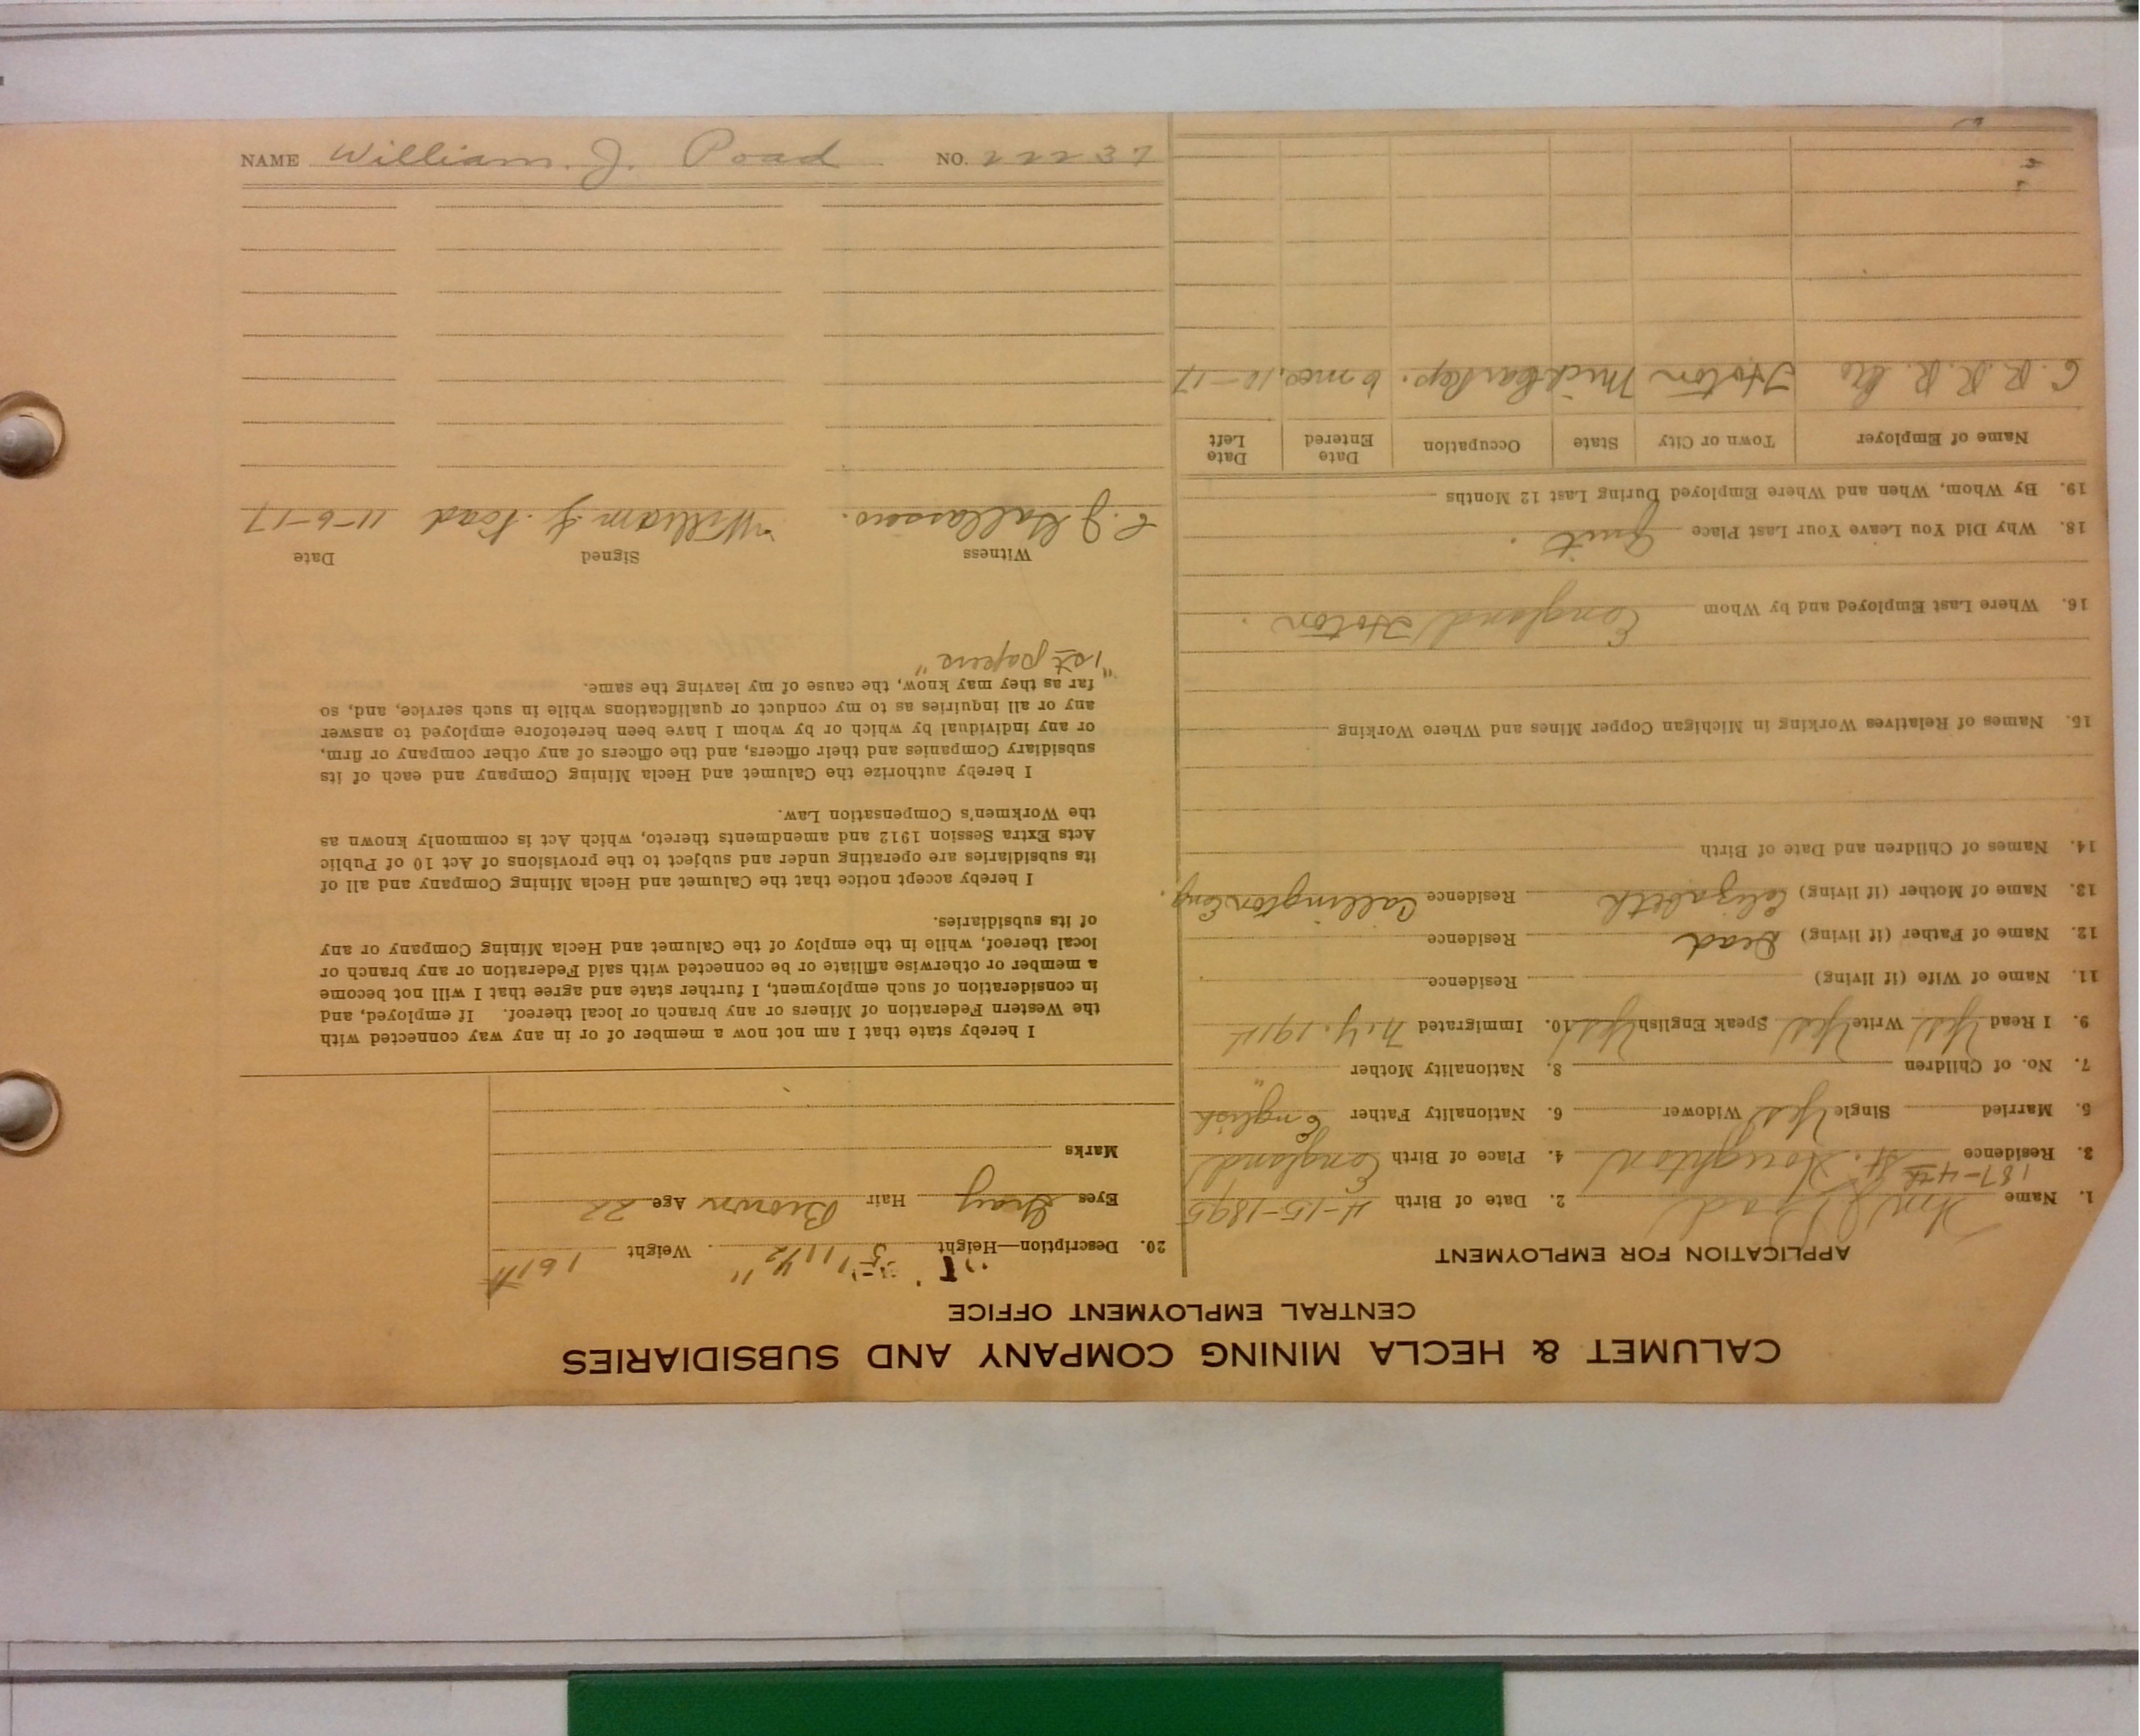 CALUMET & HECLA MINING COMPANY AND SUBSIDIARIES
CENTRAL EMPLOYMENT OFFICE
APPLICATION FOR EMPLOYMENT
1. Name Wm J Poad 2. Date of Birth 4-15-1895
187-4th St. Houghton
3. Residence 4. Place of Birth England
5. Married Single Yes Widower 6. Nationality Father English
7. No. of Children 8. Nationality Mother "
9. I Read Yes Write Yes Speak English Yes 10. Immigrated N.Y. 1914
11. Name of Wife (if living) Residence
12. Name of Father (if living) Dead Residence
13. Name of Mother (if living) Elizabeth Residence Callington Eng.
14. Names of Children and Date of Birth
15. Names of Relatives Working in Michigan Copper Mines and Where Working
16. Where Last Employed and by Whom England Hoton
18. Why Did You Leave Your Last Place Quit.
19. By Whom, When and Where Employed During Last 12 Months
Name of Employer Town or City State Occupation Date Entered Date Left
C. R. R. R. Co Hoton Mich Car Rep. 6 mos. 10-17
20. Description—Height 5' 11 1/2" Weight 161#
Eyes Gray Hair Brown Age 22
Marks
I hereby state that I am not now a member of or in any way connected with
the Western Federation of Miners or any branch or local thereof. If employed, and
in consideration of such employment, I further state and agree that I will not become
a member or otherwise affiliate or be connected with said Federation or any branch or
local thereof, while in the employ of the Calumet and Hecla Mining Company or any
of its subsidiaries.
I hereby accept notice that the Calumet and Hecla Mining Company and all of
its subsidiaries are operating under and subject to the provisions of Act 10 of Public
Acts Extra Session 1912 and amendments thereto, which Act is commonly known as
the Workmen's Compensation Law.
I hereby authorize the Calumet and Hecla Mining Company and each of its
subsidiary Companies and their officers, and the officers of any other company or firm,
or any individual by which or by whom I have been heretofore employed to answer
any or all inquiries as to my conduct or qualifications while in such service, and, so
far as they may know, the cause of my leaving the same.
"1st papers"
Witness Signed Date
C J William J. Poad 11-6-17
NAME William. J. Poad NO. 22237